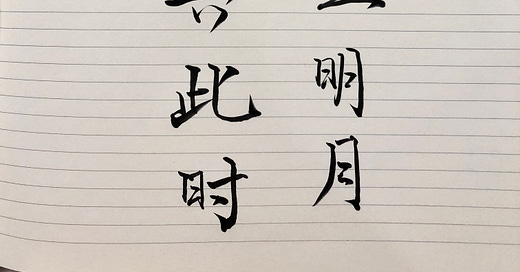 明月
此时